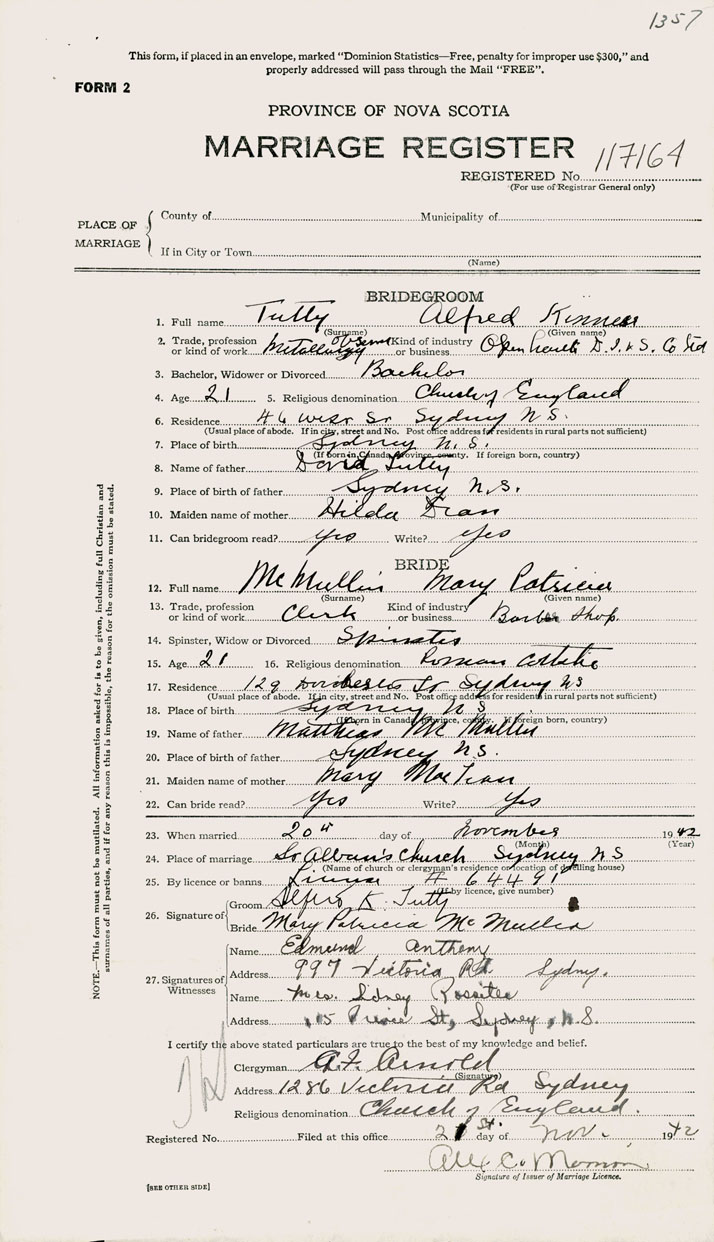 1357
This form, if placed in an envelope, marked "Dominion Statistics—Free, penalty for improper use $300," and
properly addressed will pass through the Mail "FREE".
FORM 2
PROVINCE OF NOVA SCOTIA
MARRIAGE REGISTER
117164
REGISTERED No.
(For use of Registrar General only)
PLACE OF MARRIAGE
County of Municipality of
If in City or Town
(Name)
BRIDEGROOM
1. Full name Tutty Alfred Kinnear
(Surname) (Given name)
2. Trade, profession or kind of work Metallurgy Observer Kind of industry or business Open hearth D.I. & S. Co Ltd
3. Bachelor, Widower or Divorced Bachelor
4. Age 21 5. Religious denomination Church of England
6. Residence 46 West St Sydney N.S.
(Usual place of abode. If in city, street and No. Post office address for residents in rural parts not sufficient)
7. Place of birth Sydney N.S.
(If born in Canada, province, county. If foreign born, country)
8. Name of father David Tutty
9. Place of birth of father Sydney N.S.
10. Maiden name of mother Hilda
11. Can bridegroom read? yes Write? yes
BRIDE
12. Full name McMullin Mary Patricia
(Surname) (Given name)
13. Trade, profession or kind of work Clerk Kind of industry or business Barber Shop.
14. Spinster, Widow or Divorced Spinster
15. Age 21 16. Religious denomination Roman Catholic
17. Residence 129 Dorchester St Sydney NS
(Usual place of abode. If in city, street and No. Post office address for residents in rural parts not sufficient)
18. Place of birth Sydney N S
(If born in Canada, province, county. If foreign born, country)
19. Name of father Matthias McMullin
20. Place of birth of father Sydney N.S.
21. Maiden name of mother Mary MacLean
22. Can bride read? Yes Write? Yes
23. When married 20th day of November 1942
(Month) (Year)
24. Place of marriage St Alban's Church Sydney NS
(Name of church or clergyman's residence or location of dwelling house)
25. By licence or banns License # 64491
(If by licence, give number)
26. Signature of
Groom Alfred K. Tutty
Bride Mary Patricia McMullin
27. Signatures of Witnesses
Name Edmund Anthony
Address 997 Victoria Rd. Sydney.
Name Mrs. Sidney Rossiter
Address Prince St, Sydney, N.S.
I certify the above stated particulars are true to the best of my knowledge and belief.
Clergyman A.F. Arnold
(Signature)
Address 1286 Victoria Rd Sydney
Religious denomination Church of England.
Registered No. Filed at this office 21st. day of Nov. 1942
Signature of Issuer of Marriage Licence.
[SEE OTHER SIDE]
NOTE.—This form must not be mutilated. All information asked for is to be given, including full Christian and
surnames of all parties, and if for any reason this is impossible, the reason for the omission must be stated.